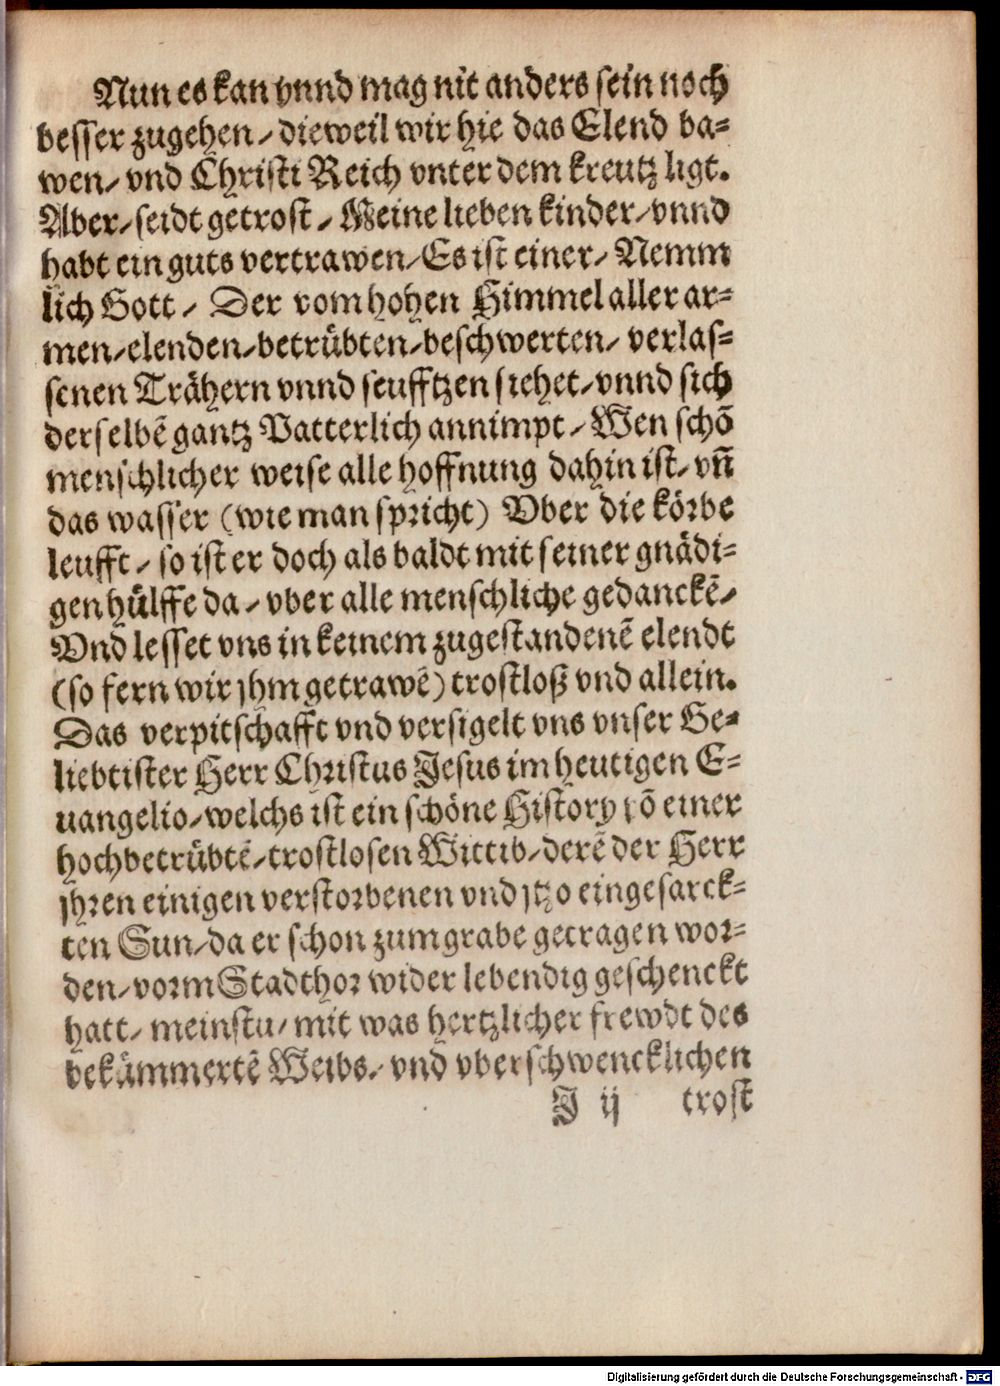 Nun es kan vnnd mag nit anders sein noch
besser zugehen / dieweil wir hie das Elend ba=
wen / vnd Christi Reich vnter dem kreutz ligt.
Aber / seidt getrost / Meine lieben kinder / vnnd
habt ein guts vertrawen / Es ist einer / Nemm
lich Gott / Der vom hohen Himmel aller ar=
men / elenden / betrübten / beschwerten / verlas=
senen Trähern vnnd seufftzen siehet / vnnd sich
derselbē gantz Vatterlich annimpt / Wen schō
menschlicher weise alle hoffnung dahin ist / vn̄
das wasser (wie man spricht) Vber die körbe
leufft / so ist er doch als baldt mit seiner gnädi=
gen hülffe da / vber alle menschliche gedanckē /
Vnd lesset vns in keinem zugestandenē elendt
(so fern wir jhm getrawē) trostloß vnd allein.
Das verpitschafft vnd versigelt vns vnser Ge=
liebtister Herr Christus Jesus im heutigen E=
uangelio / welchs ist ein schöne History vō einer
hochbetrübtē / trostlosen Wittib / derē der Herr
jhren einigen verstorbenen vnd jtzo eingesarck=
ten Sun / da er schon zum grabe getragen wor=
den / vorm Stadthor wider lebendig geschenckt
hatt / meinstu / mit was hertzlicher frewdt des
bekümmertē Weibs / vnd vberschwencklichen
J ij trost
Digitalisierung gefördert durch die Deutsche Forschungsgemeinschaft - DFG